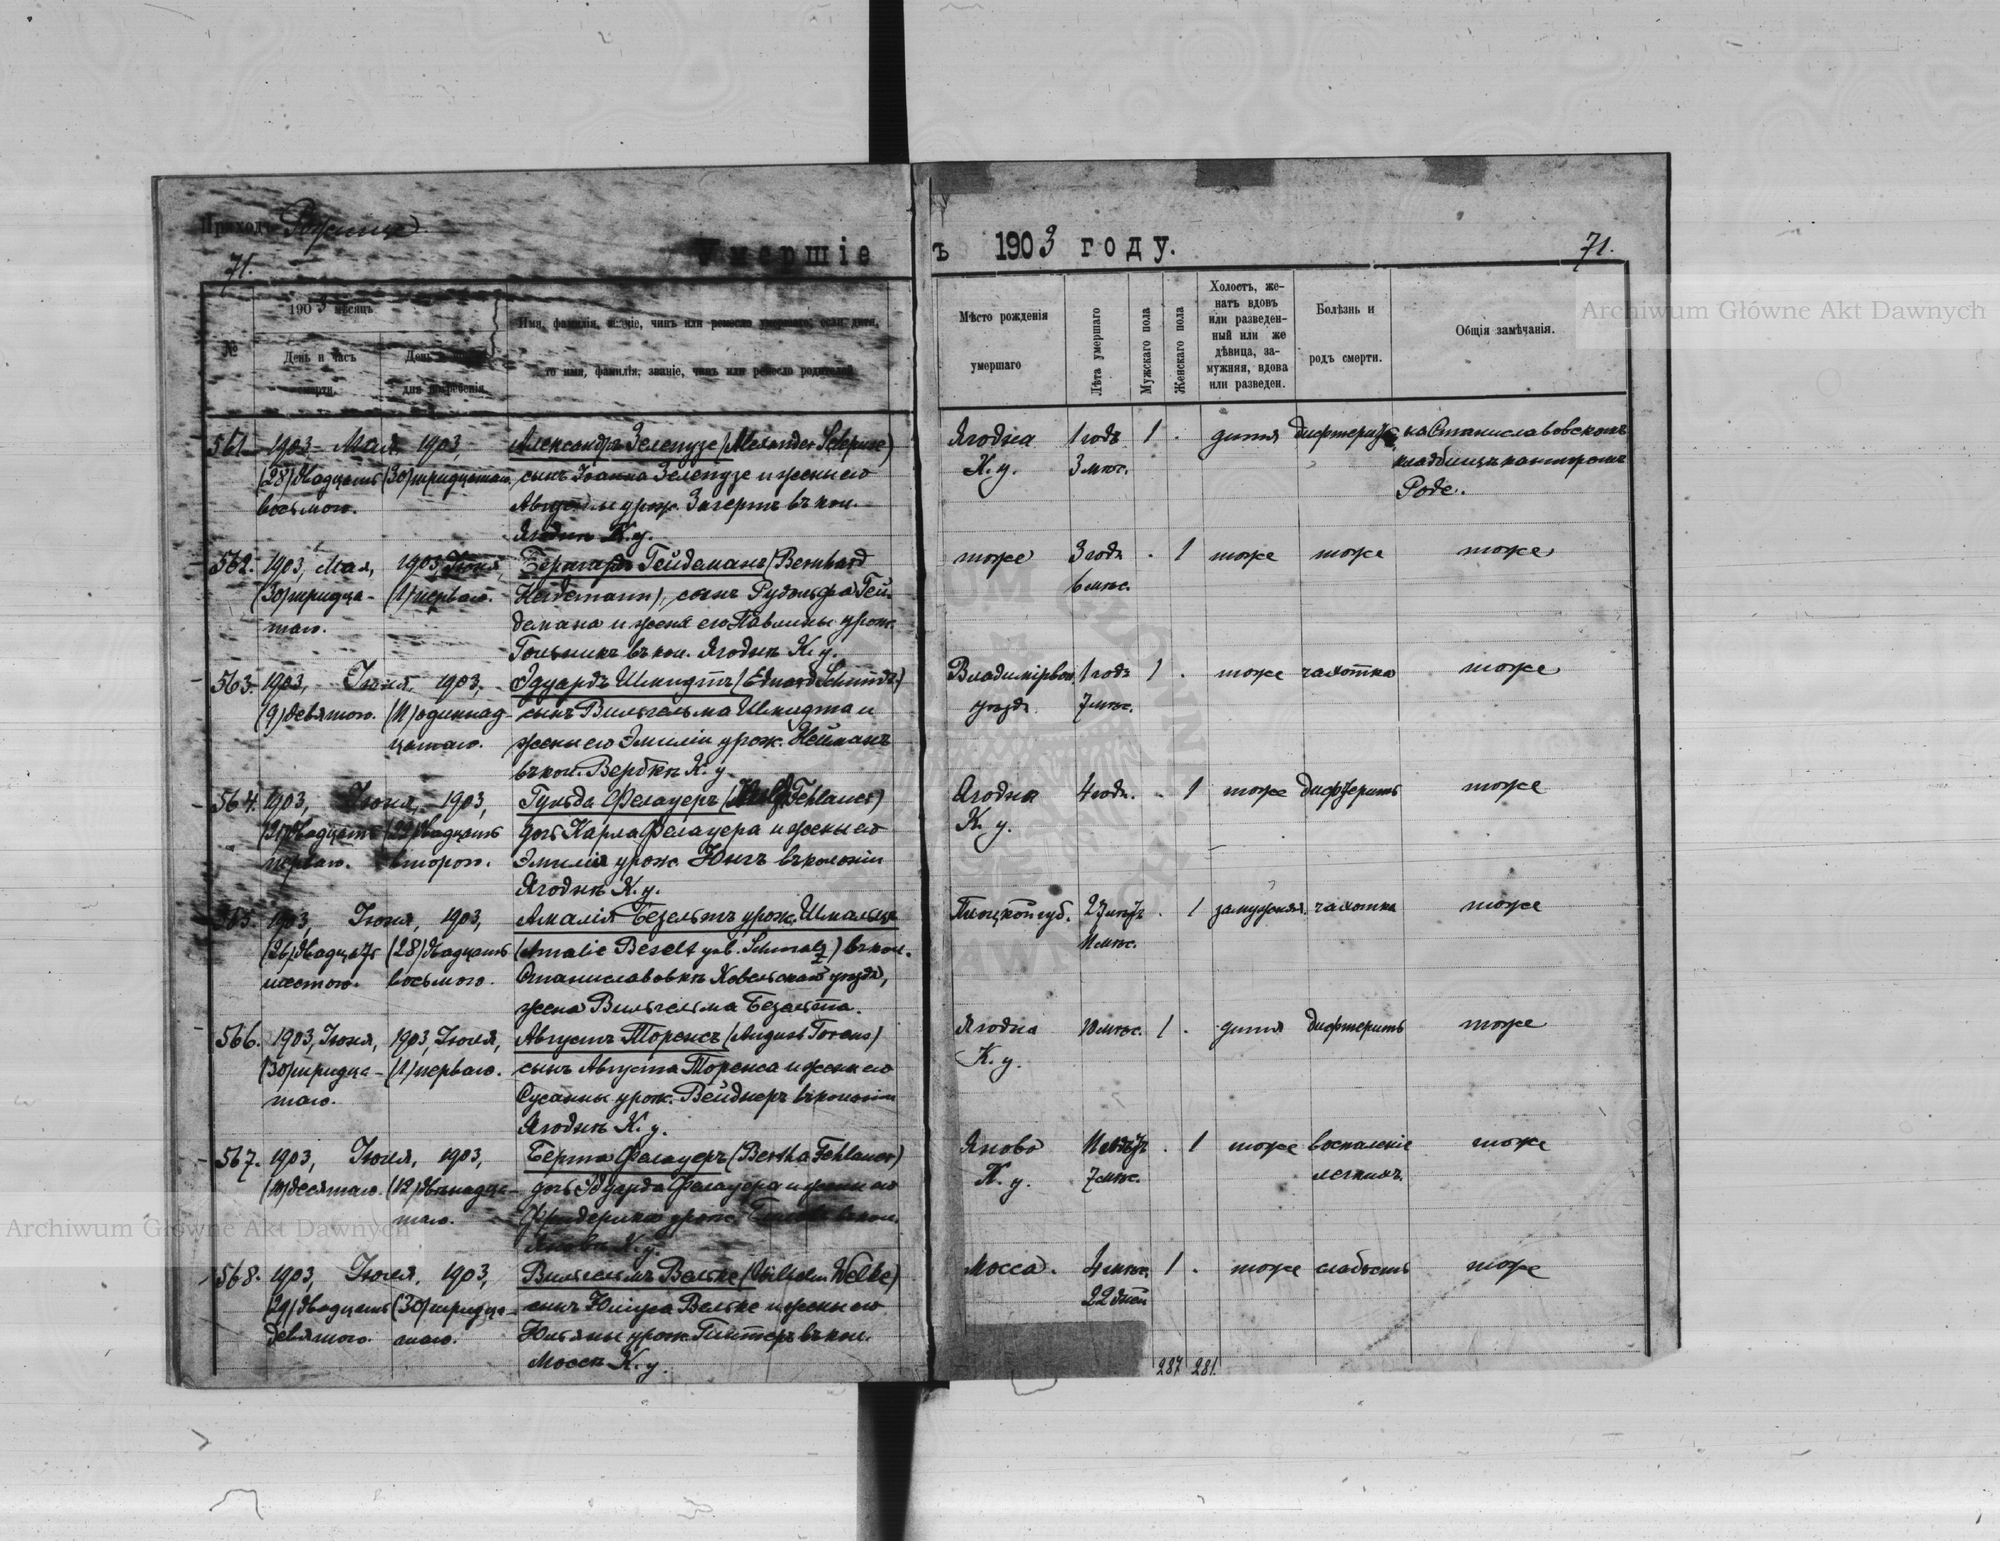 Приходъ Рожище
Умершіе
ъ 1903 году.
71.
71.
Archiwum Główne Akt Dawnych
№
1903 мѣсяцъ
День и часъ смерти.
День и
дня погребенія
Имя, фамилія, званіе, чинъ или ремесло умершаго, если дитя,
то имя, фамилія, званіе, чинъ или ремесло родителей
Мѣсто рожденія
умершаго
Лѣта умершаго
Мужскаго пола
Женскаго пола
Холостъ, же-
натъ вдовъ
или разведен-
ный или же
дѣвица, за-
мужняя, вдова
или разведен.
Болѣзнь и
родъ смерти.
Общія замѣчанія.
561. 1903, Мая, 1903, Александръ Зелепузе (Alexander Selepuse) Ягодна 1 годъ 1 . дитя дифтеритъ на Станиславовскомъ
(28) двадцать (30) тридцатаго, сынъ Іоанна Зелепузе и жены его К. у. 3 мѣс. кладбищѣ канторатъ
восьмого. урож. Загертъ въ кол. Роде.
Ягоднѣ К. у.
562. 1903, Мая, 1903, Іюня, Бернгардъ Гейдеманъ (Bernhard тоже 3 годя . 1 тоже тоже тоже
(30) тридца- (1) перваго. Heidemann), сынъ Рудольфа Гей- 6 мѣс.
таго. демана и жены его Павлины урож.
въ кол. Ягоднѣ К. у.
563. 1903, Іюня, 1903. Эдуардъ Шмидтъ (Eduard Schmidt) Владимірвол. 1 годъ 1 . тоже чахотка тоже
(9) девятого. (11) одиннад- сынъ Вильгельма Шмидта и уѣзда 7 мѣс.
цатаго. жены его Эмиліи урож. Нейманъ
въ кол. Вербкѣ К. у.
564. 1903, Іюня, 1903, Гульда Фелауеръ (Hulda Fehlauer) Ягодна 4 года. . 1 тоже дифтеритъ тоже
(21) двадцать (22) двадцать дочь Карла Фелауера и жены его К. у.
перваго. второго. Эмилія урож. Юнгъ въ колоніи
Ягоднѣ К. у.
565. 1903, Іюня, 1903, Амалія Безельтъ урож. Шмальцъ Плоцкой губ. 27 лѣтъ . 1 замужняя. чахотка тоже
(26) двадцать (28) двадцать (Amalie Beselt geb. Schmalz) въ кол. 11 мѣс.
шестого. восьмого. Станиславовкѣ Ковельскаго уѣзда,
жена Вильгельма Безельта.
566. 1903, Іюня, 1903, Іюля, Августъ Торенсъ (August Torens) Ягодна 10 мѣс. 1 . дитя дифтеритъ тоже
(30) тридца- (1) перваго. сынъ Августа Торенса и жены его К. у.
таго. Сусанны урож. Вейднеръ въ колоніи
Ягоднѣ К. у.
567. 1903, Іюля, 1903, Берта Фелауеръ (Bertha Fehlauer) Яново 11 лѣтъ . 1 тоже воспаленіе тоже
(10) десятаго. (12) двѣнадца- дочь Эдуарда Фелауера и жены его К. у. 7 мѣс. легкихъ.
таго. Фридерика урож. въ кол.
Яновѣ К. у.
568. 1903, Іюля, 1903, Вильгельмъ Вельке (Wilhelm Welke) Мосса. 4 мѣс. 1 . тоже слабость тоже
(29) двадцать (30) тридца- сынъ Юліуса Вельке и жены его 22 дней
девятого. таго. Юльяны урож. въ кол.
Моссѣ К. у.
287 281.
Archiwum Główne Akt Dawnych